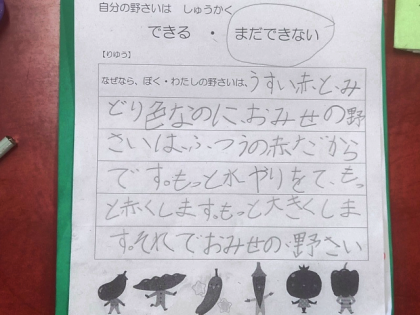 自分の野さいは しゅうかく
できる ・ まだできない
【りゆう】
なぜなら、ぼく・わたしの野さいは、うすい赤と、み
どり色なのに、おみせの野
さいは、ふつうの赤だから
です。もっと水やりをて、もっ
と赤くします。もっと大きくしま
す。それでおみせの野さい